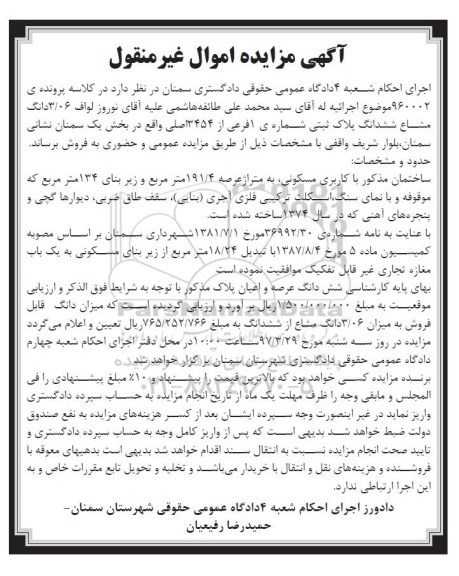 آگهی مزایده اموال غیرمنقول
اجرای احکام شعبه ۴دادگاه عمومی حقوقی دادگستری سمنان در نظر دارد در کلاسه پرونده ی
۹۶۰۰۰۲موضوع اجرائیه له آقای سید محمد علی طائفه‌هاشمی علیه آقای نوروز لواف ۳/۰۶دانگ
مشاع ششدانگ پلاک ثبتی شماره ی ۱فرعی از ۳۴۵۴اصلی واقع در بخش یک سمنان نشانی
سمنان،بلوار شریف واقفی با مشخصات ذیل از طریق مزایده عمومی و حضوری به فروش برساند.
حدود و مشخصات:
ساختمان مذکور با کاربری مسکونی، به متراژعرصه ۱۹۱/۴متر مربع و زیر بنای ۱۳۴متر مربع که
موقوفه و با نمای سنگ،اسکلت ترکیبی فلزی آجری (بنایی)، سقف طاق ضربی، دیوارها گچی و
پنجره‌های آهنی که در سال ۱۳۷۴ساخته شده است.
با عنایت به نامه شماره‌ی ۳۶۹۹۲/۳۰مورخ ۱۳۸۱/۷/۱شهرداری سمنان بر اساس مصوبه
کمیسیون ماده ۵ مورخ ۱۳۸۷/۸/۴با تبدیل ۱۸/۲۴متر مربع از زیر بنای مسکونی به یک باب
مغازه تجاری غیر قابل تفکیک موافقیت نموده است
بهای پایه کارشناسی شش دانگ عرصه و اعیان پلاک مذکور با توجه به شرایط فوق الذکر و ارزیابی
موقعیت به مبلغ ۱/۵۰۰/۰۰۰/۰۰۰ریال بر آورد و ارزیابی گردیده است که میزان دانگ قابل
فروش به میزان ۳/۰۶دانگ مشاع از ششدانگ به مبلغ ۷۶۵/۲۵۲/۷۶۶ریال تعیین و اعلام می‌گردد
مزایده در روز سه شنبه مورخ ۹۷/۳/۲۹ساعت ۱۰:۰۰در محل دفتر اجرای احکام شعبه چهارم
دادگاه عمومی حقوقی دادگستری شهرستان سمنان برگزار خواهد شد
برنده مزایده کسی خواهد بود که بالاترین قیمت را پیشنهاد و ۱۰٪ مبلغ پیشنهادی را فی
المجلس و مابقی وجه را ظرف مهلت یک ماه از تاریخ انجام مزایده به حساب سپرده دادگستری
واریز نماید در غیر اینصورت وجه سپرده ایشان بعد از کسر هزینه‌های مزایده به نفع صندوق
دولت ضبط خواهد شد بدیهی است که پس از واریز کامل وجه به حساب سپرده دادگستری و
تایید صحت انجام مزایده نسبت به انتقال سند اقدام خواهد شد بدیهی است بدهیهای معوقه با
فروشنده و هزینه‌های نقل و انتقال با خریدار می‌باشد و تخلیه و تحویل تابع مقررات خاص و به
این اجرا ارتباطی ندارد.
دادورز اجرای احکام شعبه ۴دادگاه عمومی حقوقی شهرستان سمنان–
حمیدرضا رفیعیان